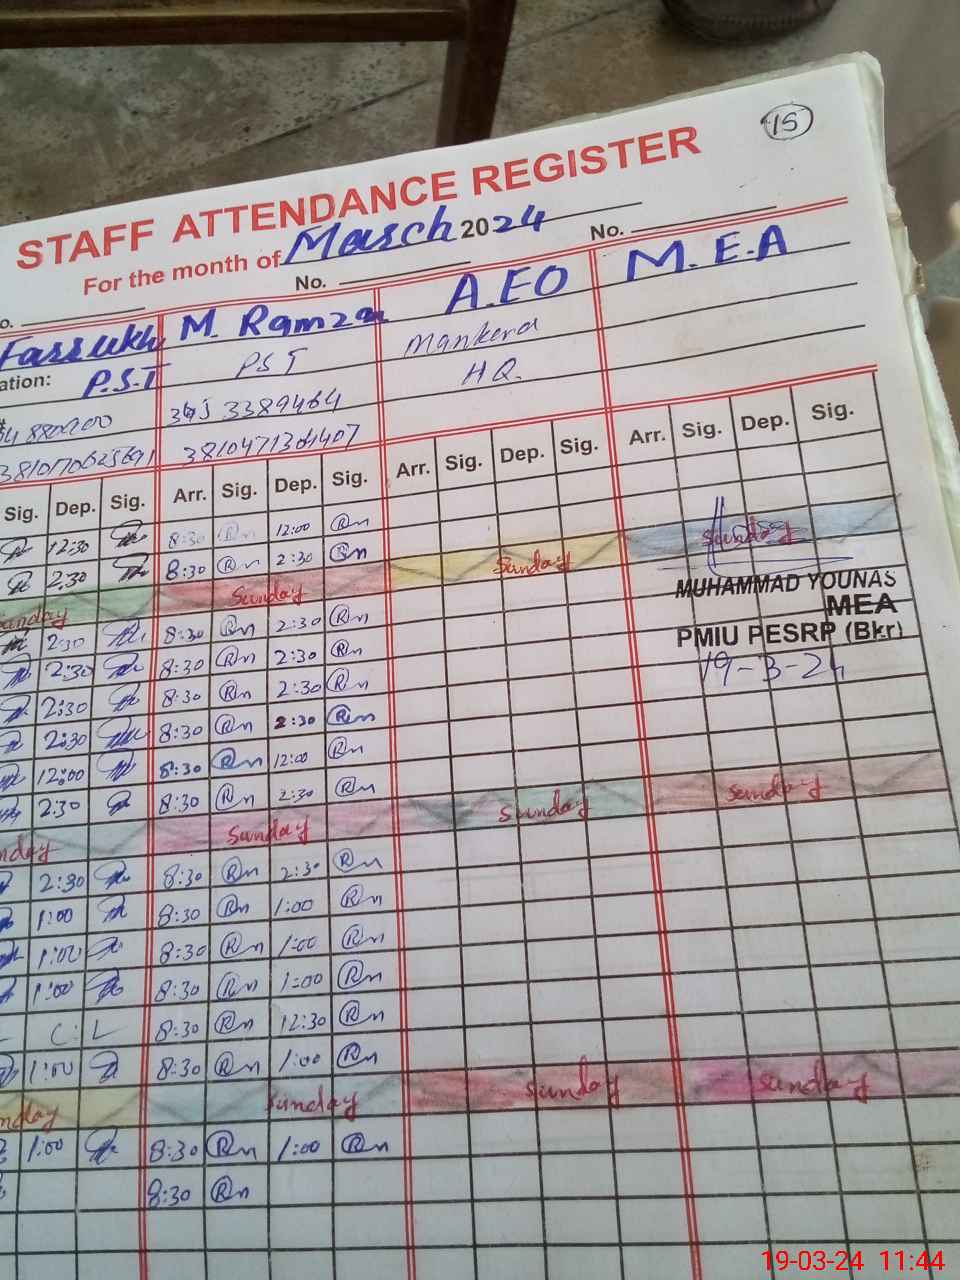 15
STAFF ATTENDANCE REGISTER
For the month of March 2024
No. No.
Farrukh M. Ramzan A.EO M.E.A
ation: P.S.T PST Mankera
HQ.
3389464
3810471304407
Sig. Dep. Sig. Arr. Sig. Dep. Sig. Arr. Sig. Dep. Sig. Arr. Sig. Dep. Sig.
12:30 8:30 Rn 12:00 Rn
2:30 8:30 Rn 2:30 Rn
Sunday Sunday Sunday Sunday
2:30 8:30 Rn 2:30 Rn
2:30 8:30 Rn 2:30 Rn
2:30 8:30 Rn 2:30 Rn
2:30 8:30 Rn 2:30 Rn
12:00 8:30 Rn 12:00 Rn
2:30 8:30 Rn 2:30 Rn
MUHAMMAD YOUNAS
MEA
PMIU PESRP (Bkr)
19-3-24
nday Sunday Sunday Sunday
2:30 8:30 Rn 2:30 Rn
1:00 8:30 Rn 1:00 Rn
1:00 8:30 Rn 1:00 Rn
1:00 8:30 Rn 1:00 Rn
C:L 8:30 Rn 12:30 Rn
1:00 8:30 Rn 1:00 Rn
nday Sunday Sunday Sunday
1:00 8:30 Rn 1:00 Rn
8:30 Rn
19-03-24 11:44